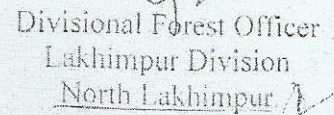 Divisional Forest Officer
Lakhimpur Division
North Lakhimpur